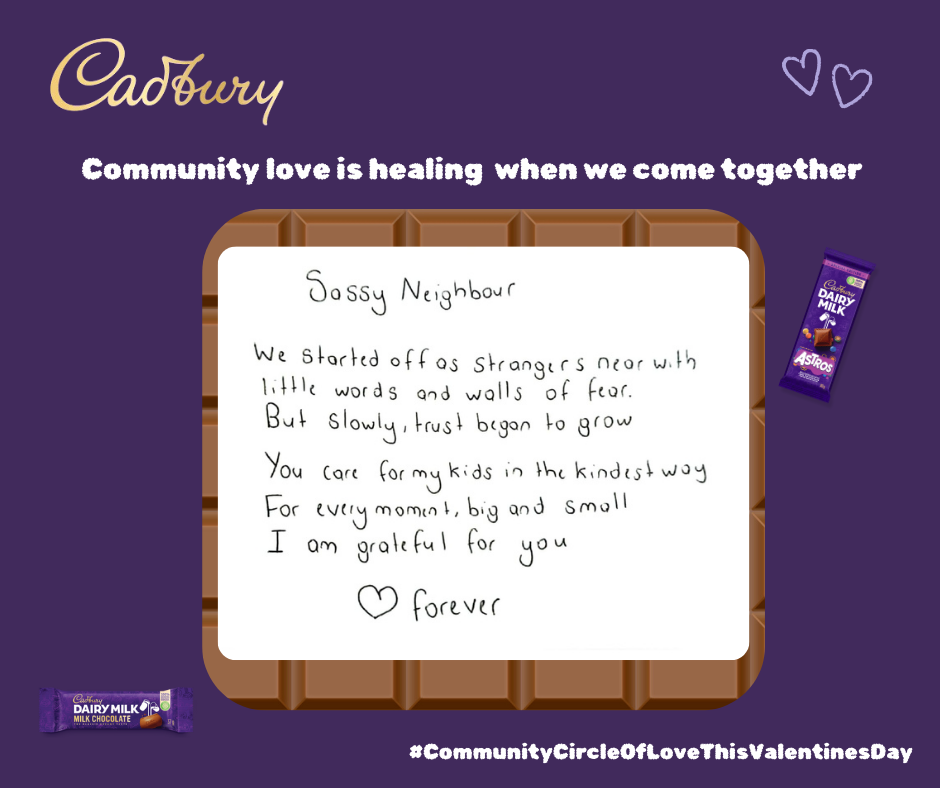 Cadbury
Community love is healing when we come together
Sassy Neighbour
We started off as strangers near with
little words and walls of fear.
But slowly, trust began to grow
You care for my kids in the kindest way
For every moment, big and small
I am grateful for you
♡ forever
Cadbury
DAIRY
MILK
ASTROS
Cadbury
DAIRY MILK
MILK CHOCOLATE
#CommunityCircleOfLoveThisValentinesDay